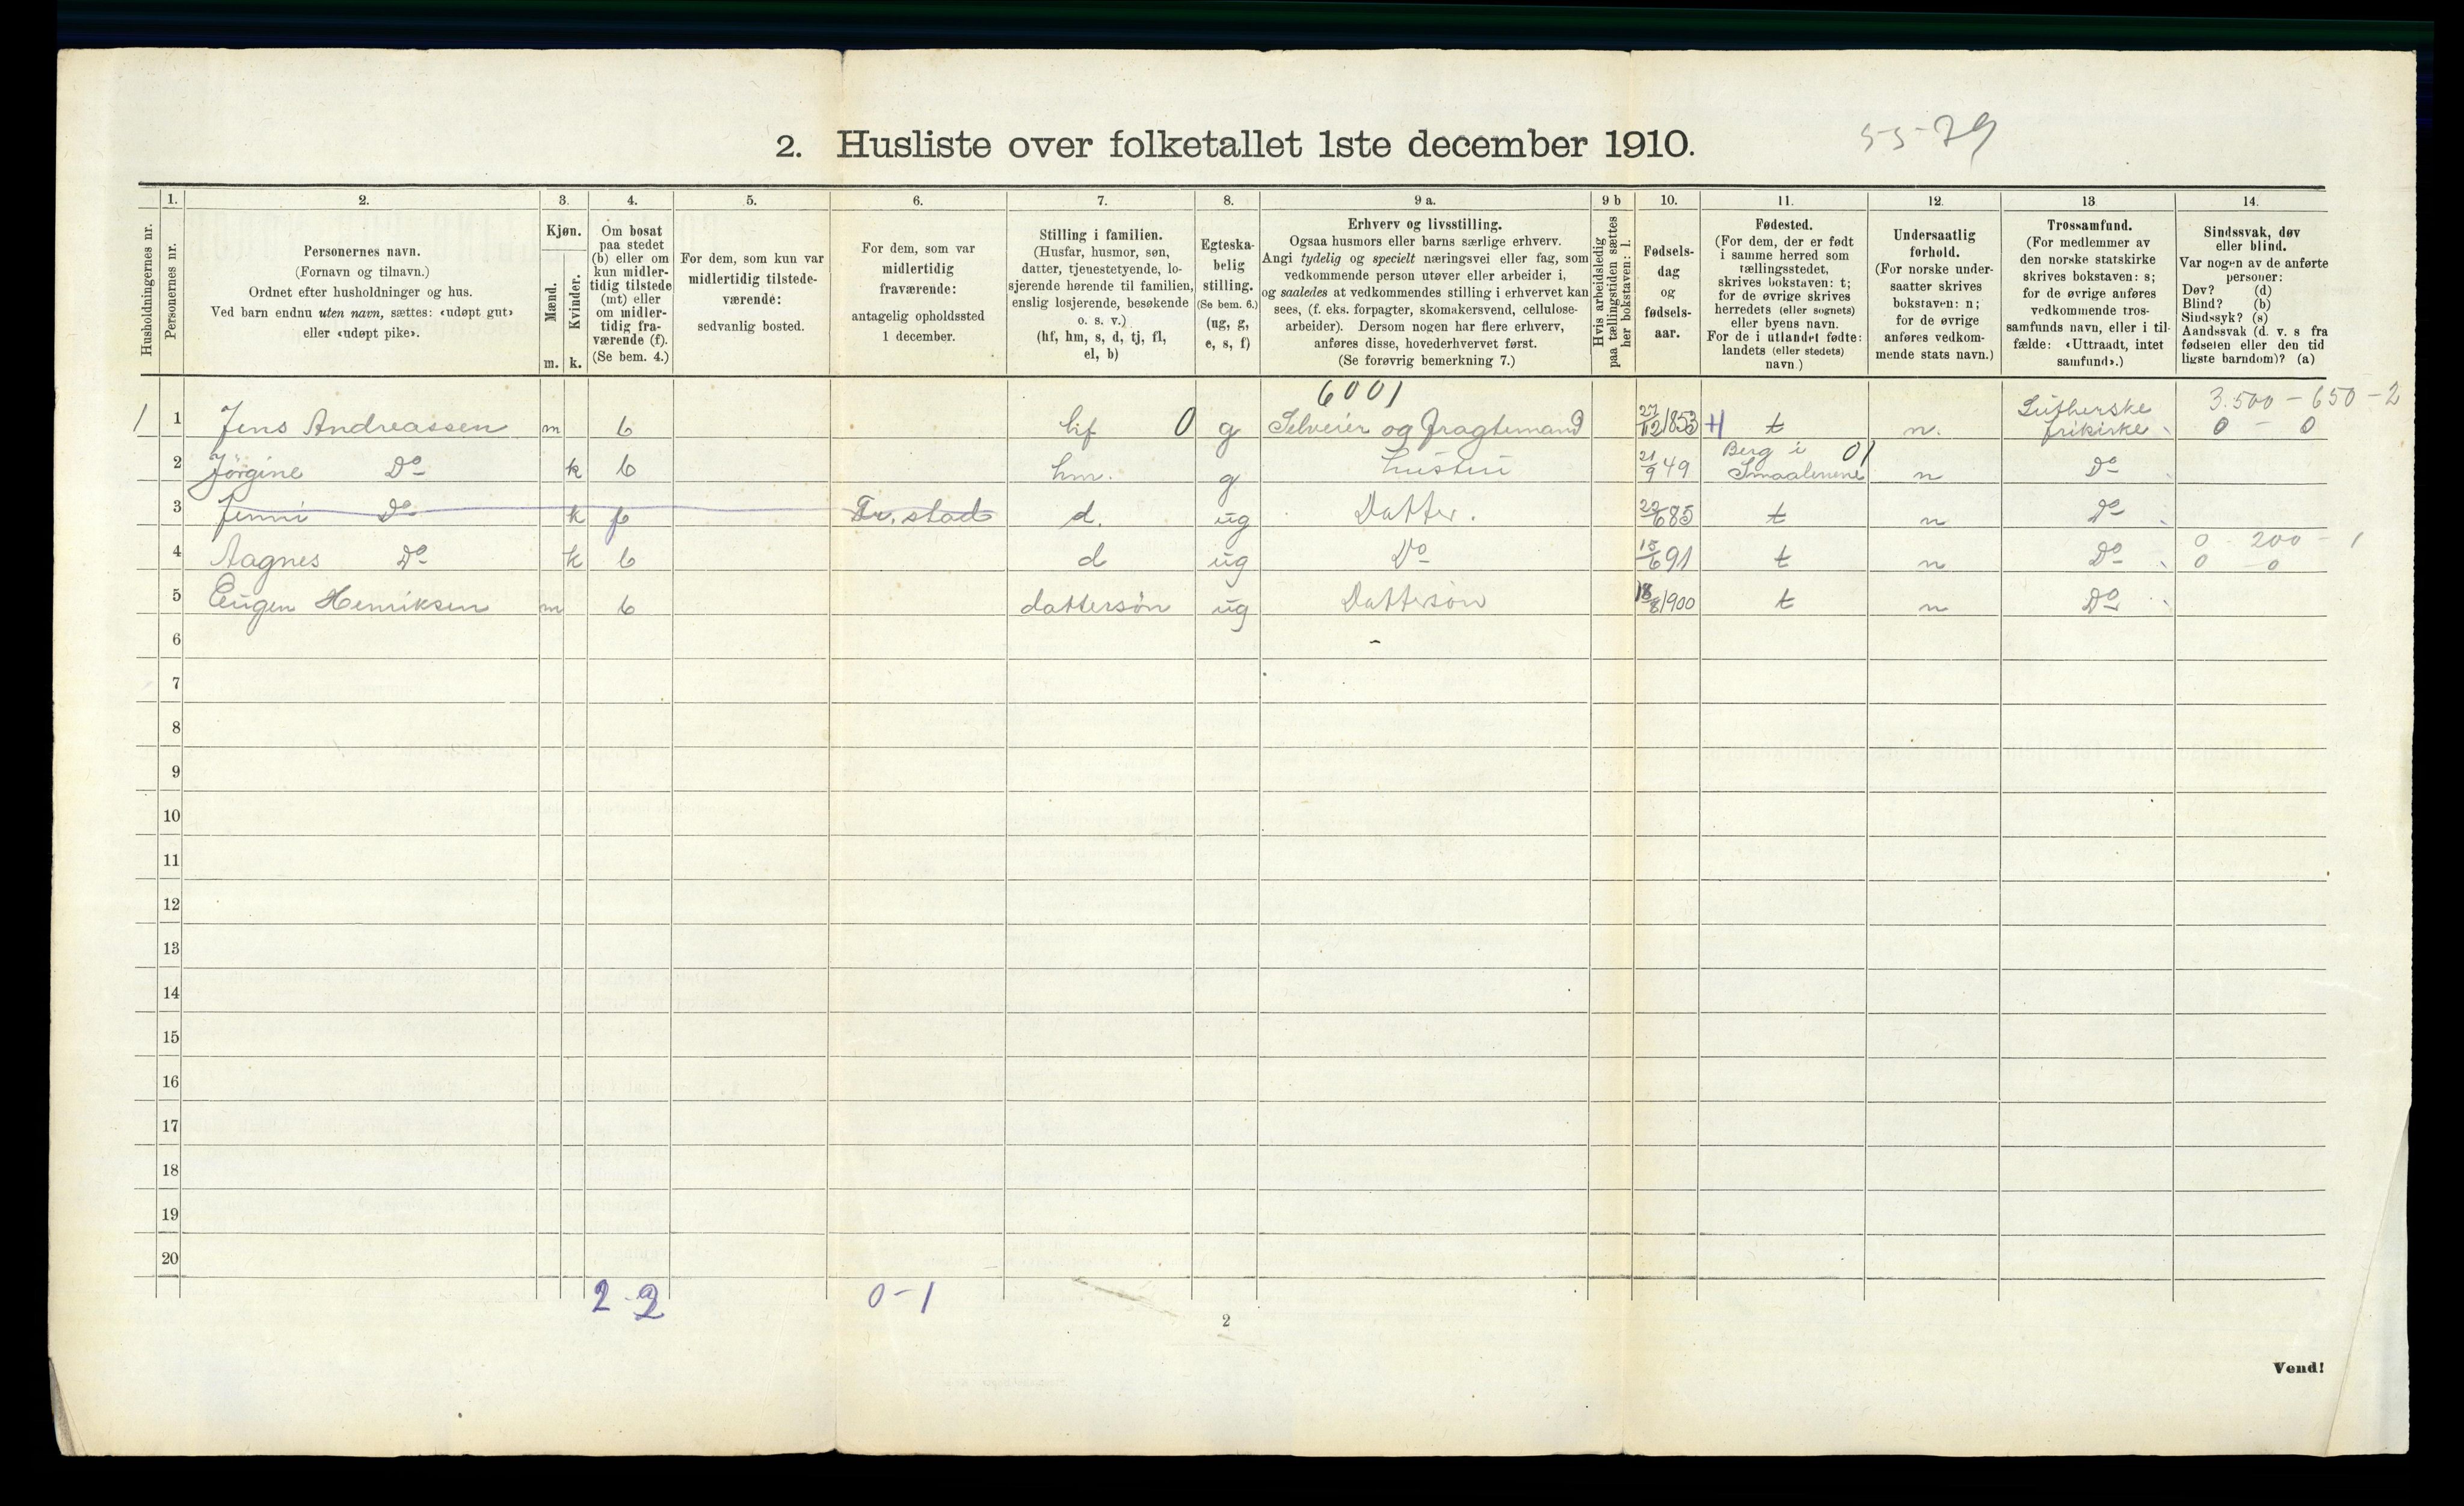 2. Husliste over folketallet 1ste december 1910.
55-79
Husholdningernes nr.
1.
Personernes nr.
2.
Personernes navn.
(Fornavn og tilnavn.)
Ordnet efter husholdninger og hus.
Ved barn endnu uten navn, sættes: «udøpt gut»
eller «udøpt pike».
3.
Kjøn.
Mænd.
Kvinder.
m.
k.
4.
Om bosat
paa stedet
(b) eller om
kun midler-
tidig tilstede
(mt) eller
om midler-
tidig fra-
værende (f).
(Se bem. 4.)
5.
For dem, som kun var
midlertidig tilstede-
værende:
sedvanlig bosted.
6.
For dem, som var
midlertidig
fraværende:
antagelig opholdssted
1 december.
7.
Stilling i familien.
(Husfar, husmor, søn,
datter, tjenestetyende, lo-
sjerende hørende til familien,
enslig losjerende, besøkende
o. s. v.)
(hf, hm, s, d, tj, fl,
el, b)
8.
Egteska-
belig
stilling.
(Se bem. 6.)
(ug, g,
e, s, f)
9 a.
Erhverv og livsstilling.
Ogsaa husmors eller barns særlige erhverv.
Angi tydelig og specielt næringsvei eller fag, som
vedkommende person utøver eller arbeider i,
og saaledes at vedkommendes stilling i erhvervet kan
sees, (f. eks. forpagter, skomakersvend, cellulose-
arbeider). Dersom nogen har flere erhverv,
anføres disse, hovederhvervet først.
(Se forøvrig bemerkning 7.)
9 b
Hvis arbeidsledig
paa tællingstiden sættes
her bokstaven: l.
10.
Fødsels-
dag
og
fødsels-
aar.
11.
Fødested.
(For dem, der er født
i samme herred som
tællingsstedet,
skrives bokstaven: t;
for de øvrige skrives
herredets (eller sognets)
eller byens navn.
For de i utlandet fødte:
landets (eller stedets)
navn.)
12.
Undersaatlig
forhold.
(For norske under-
saatter skrives
bokstaven: n;
for de øvrige
anføres vedkom-
mende stats navn.)
13
Trossamfund.
(For medlemmer av
den norske statskirke
skrives bokstaven: s;
for de øvrige anføres
vedkommende tros-
samfunds navn, eller i til-
fælde: «Uttraadt, intet
samfund».)
14.
Sindssvak, døv
eller blind.
Var nogen av de anførte
personer:
Døv? (d)
Blind? (b)
Sindssyk? (s)
Aandssvak (d. v. s fra
fødselen eller den tid
ligste barndom)? (a)
6001
3.500 - 650 - 2
1 1 Jens Andreassen m b hf 0 g Selveier og Fragtemand 27/12 1853 H t n. Lutherske frikirke 0 - 0
2 Jörgine Do k b hm. g hustru 21/9 49 Berg i Smaalenene 01 n Do
3 Jenni Do k f Fr. stad d. ug Datter. 22/6 85 t n Do
4 Aagnes Do k b d ug Do 15/6 91 t n Do 0 - 200 - 1
0 - 0
5 Eugen Henriksen m b dattersön ug Dattersön 18/8 1900 t n Do
6
7
8
9
10
11
12
13
14
15
16
17
18
19
20
2 - 2
0 - 1
2
Vend!